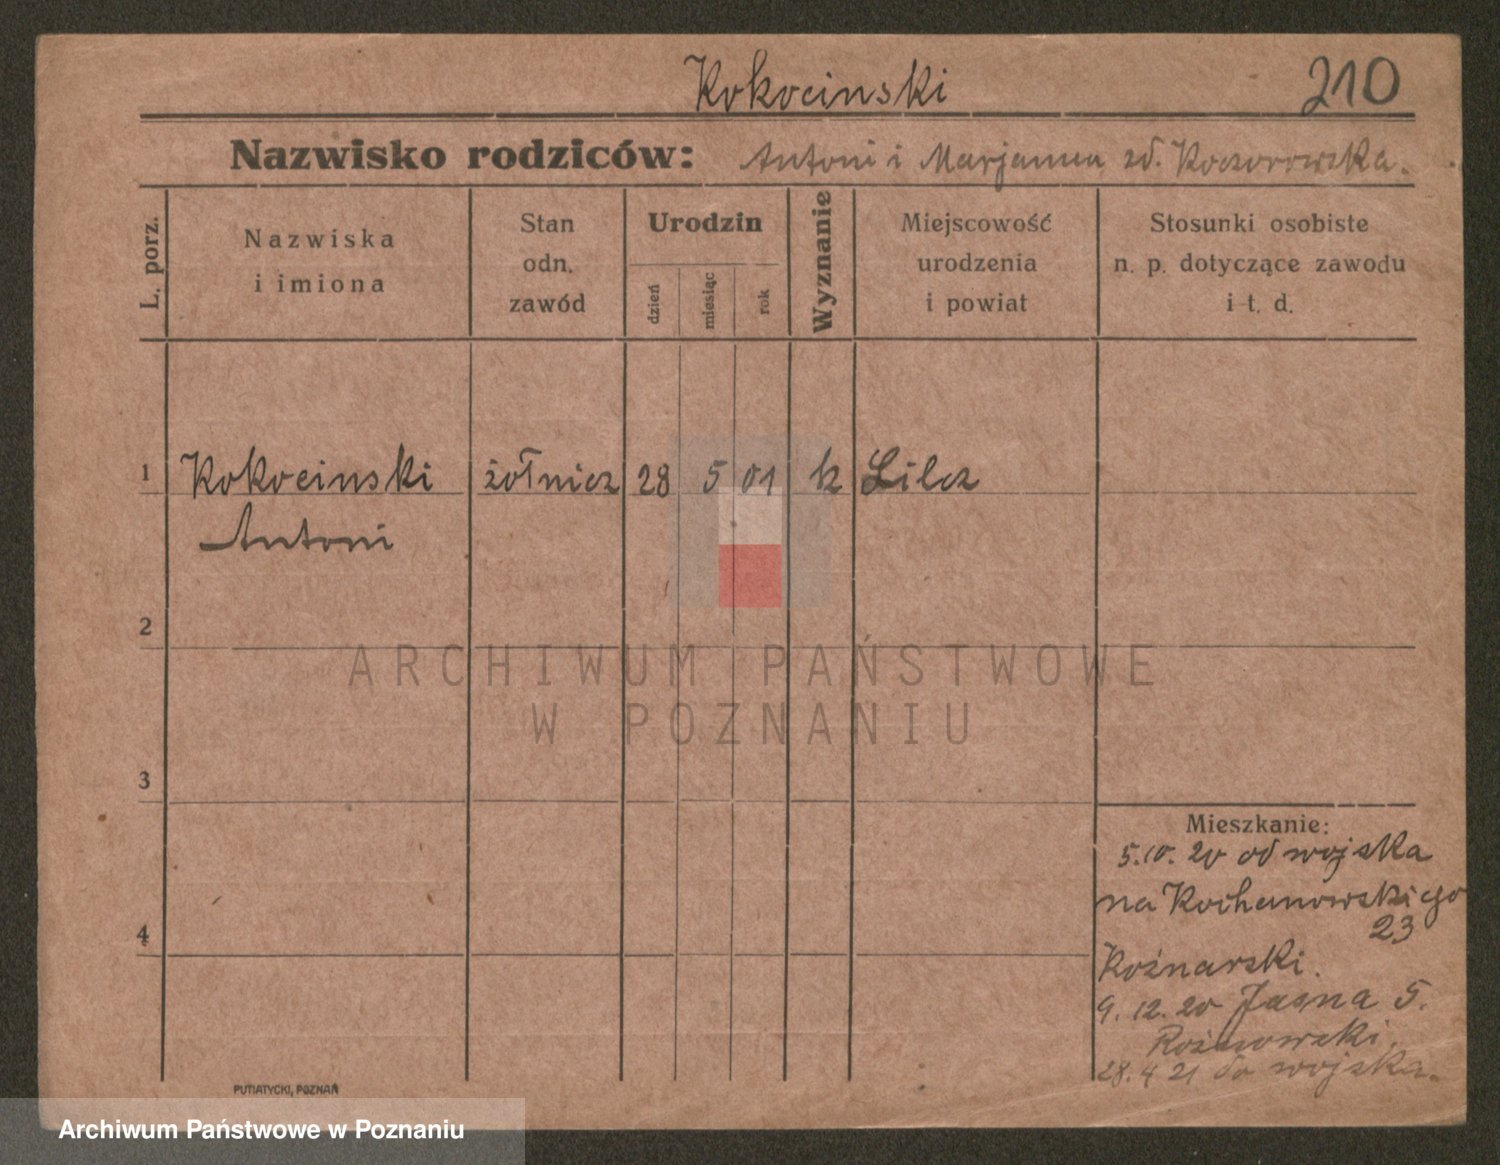 Kokocinski 210
Nazwisko rodziców: Antoni i Marjanna zd. Koczorowska.
L. porz.
Nazwiska
i imiona
Stan
odn.
zawód
Urodzin
dzień
miesiąc
rok
Wyznanie
Miejscowość
urodzenia
i powiat
Stosunki osobiste
n. p. dotyczące zawodu
i t. d.
1 Kokocinski żołnierz 28 5 01 k
Antoni
2
3
4
Mieszkanie:
5.10.20 od wojska
na Kochanowskiego
23
Koźnarski.
9.12.20 Jasna 5.
28.4 21 do wojska.
PUTIATYCKI, POZNAŃ
ARCHIWUM PAŃSTWOWE
W POZNANIU
Archiwum Państwowe w Poznaniu